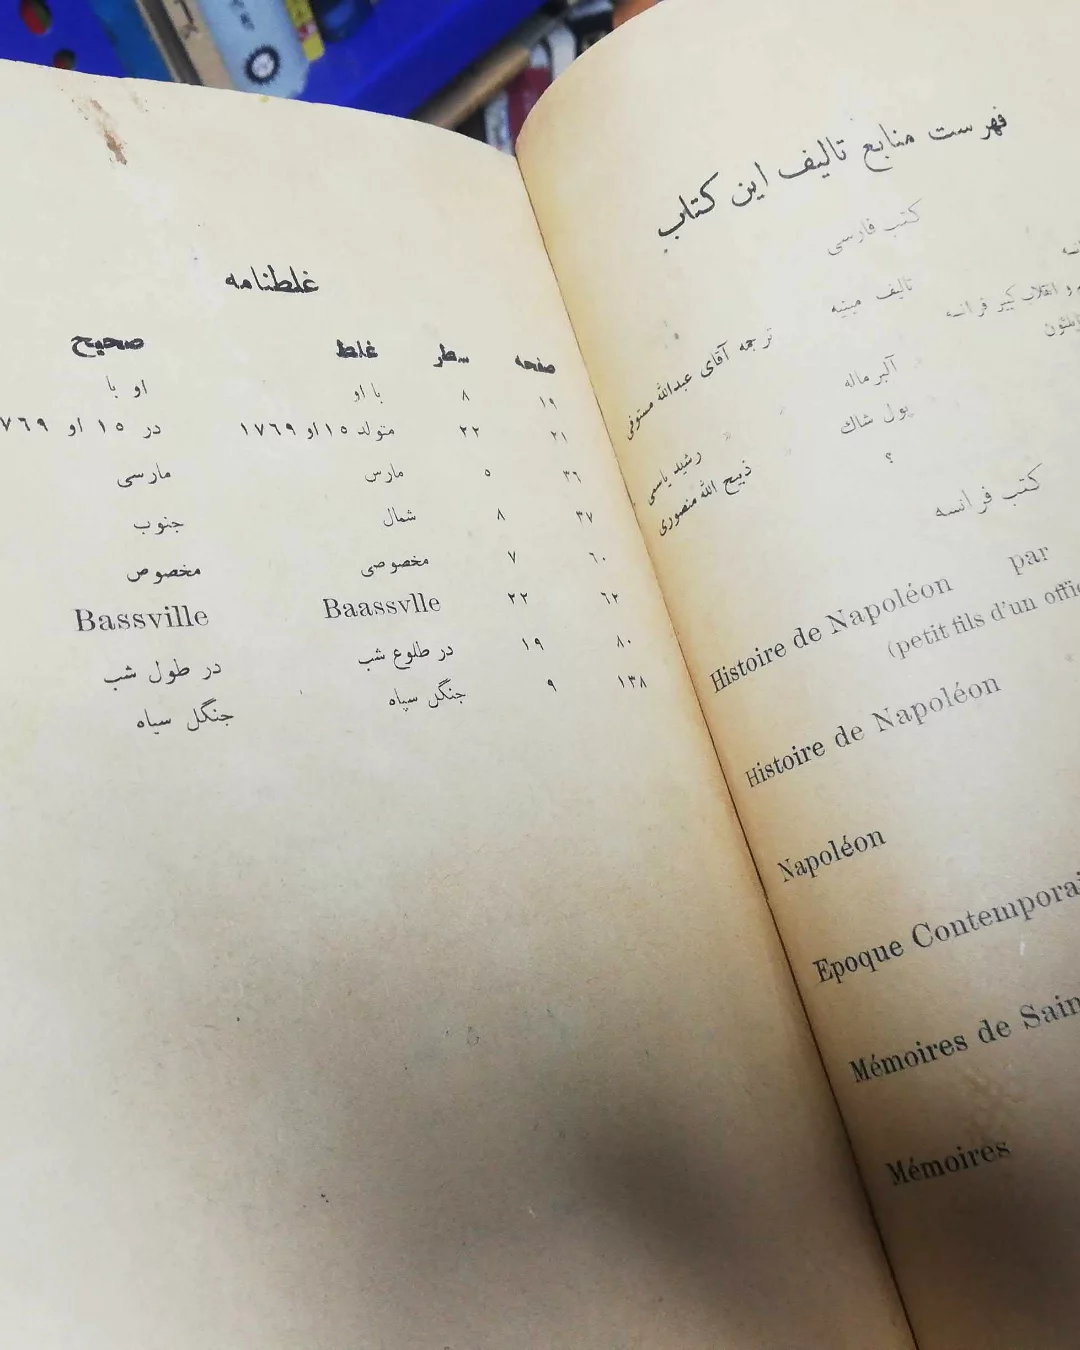 فهرست منابع تالیف این کتاب
کتب فارسی
تالیف مینیه
و انقلاب کبیر فرانسه
ترجمه آقای عبدالله مستوفی
آلبر ماله
پول شاك
رشید یاسمی
؟
ذبیح الله منصوری
کتب فرانسه
Histoire de Napoléon par
(petit fils d'un
Histoire de Napoléon
Napoléon
Epoque
Mémoires de
Mémoires
غلطنامه
صفحه سطر غلط صحیح
۱۹ ۸ با او او با
۲۱ ۲۲ متولد ۱۵ او ۱۷۶۹ در ۱۵ او ۷۶۹
۳۶ ۵ مارس مارسی
۳۷ ۸ شمال جنوب
۶۰ ۷ مخصوصی مخصوص
۶۲ ۲۲ Baassvlle Bassville
۸۰ ۱۹ در طلوع شب در طول شب
۱۳۸ ۹ جنگل سپاه جنگل سیاه